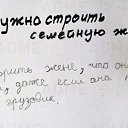 нужно строить
семейную ж
орить жене, что он
, даже если она н
грузовик.